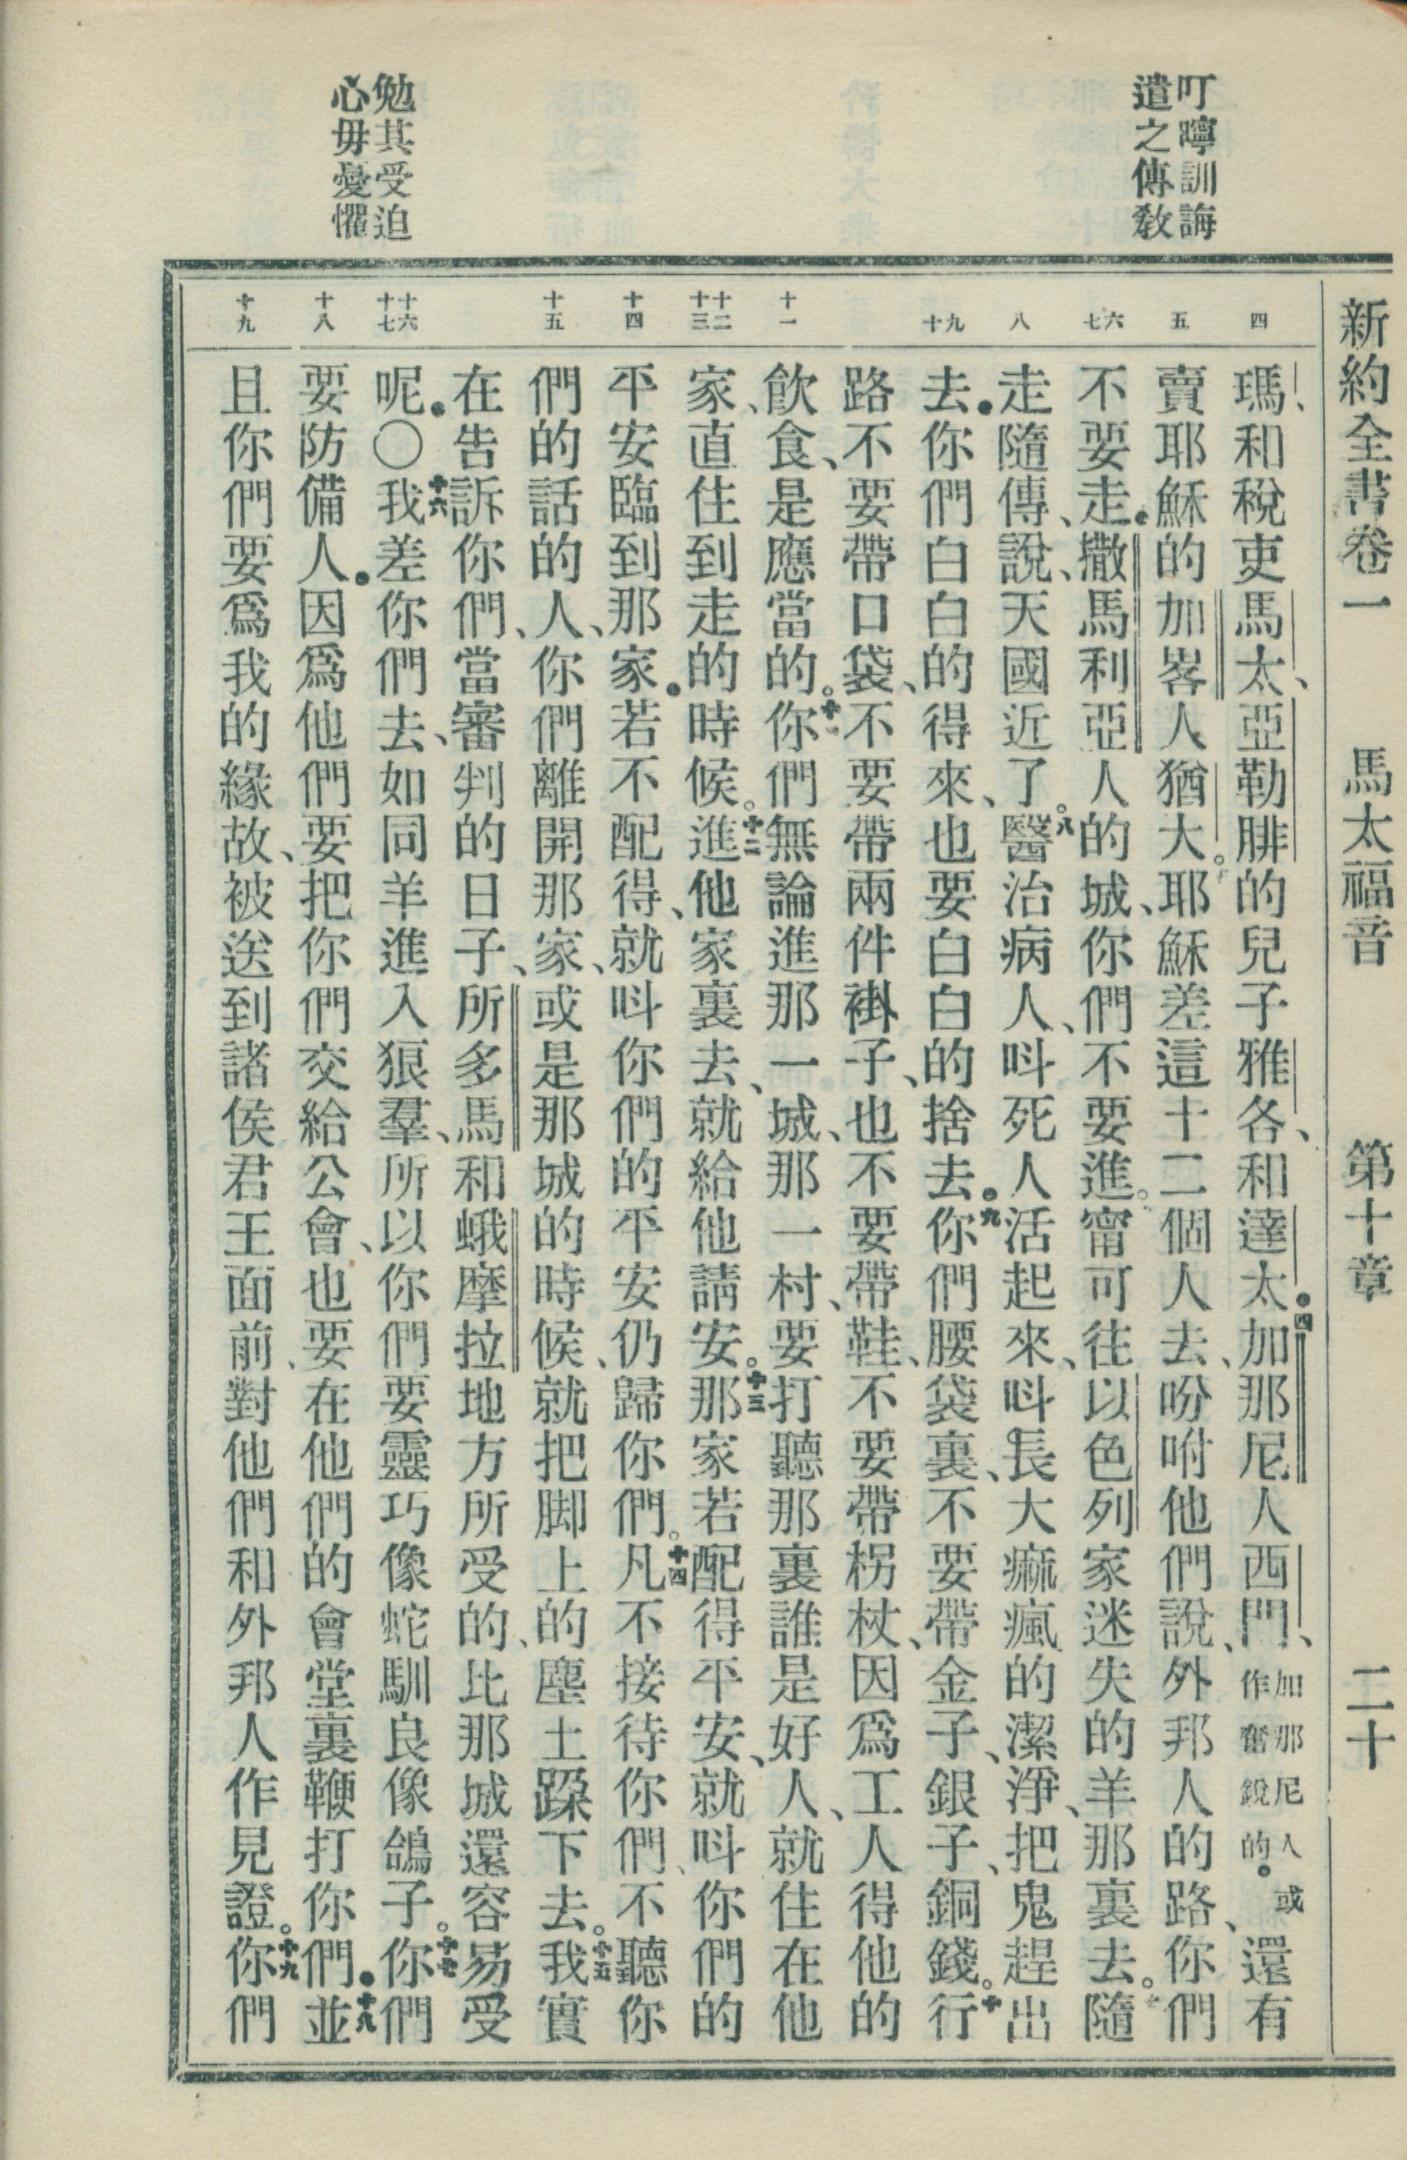 新約全書卷一　馬太福音　第十章　二十
叮嚀訓誨
遣之傳教
勉其受迫
心毋憂懼
四
五
六
七
八
九
十
十一
十二
十三
十四
十五
十六
十七
十八
十九
瑪、和稅吏馬太、亞勒腓的兒子雅各、和達太。四加那尼人西門、加那尼人或作奮銳的。還有
賣耶穌的加畧人猶大。五耶穌差這十二個人去、吩咐他們說、外邦人的路、你們
不要走。撒馬利亞人的城、你們不要進。六甯可往以色列家迷失的羊那裏去。七隨
走隨傳、說、天國近了。八醫治病人、呌死人活起來、呌長大痲瘋的潔淨、把鬼趕出
去。你們白白的得來、也要白白的捨去。九你們腰袋裏、不要帶金子、銀子、銅錢。十行
路不要帶口袋、不要帶兩件褂子、也不要帶鞋、不要帶柺杖、因爲工人得他的
飲食、是應當的。十一你們無論進那一城、那一村、要打聽那裏誰是好人、就住在他
家、直住到走的時候。十二進他家裏去、就給他請安。十三那家若配得平安、就呌你們的
平安臨到那家。若不配得、就呌你們的平安仍歸你們。十四凡不接待你們、不聽你
們的話的人、你們離開那家、或是那城的時候、就把脚上的塵土跺下去。十五我實
在告訴你們、當審判的日子、所多馬和蛾摩拉地方所受的、比那城還容易受
呢。〇十六我差你們去、如同羊進入狼羣、所以你們要靈巧像蛇、馴良像鴿子。十七你們
要防備人。因爲他們要把你們交給公會、也要在他們的會堂裏鞭打你們。十八並
且你們要爲我的緣故、被送到諸侯君王面前、對他們和外邦人作見證。十九你們